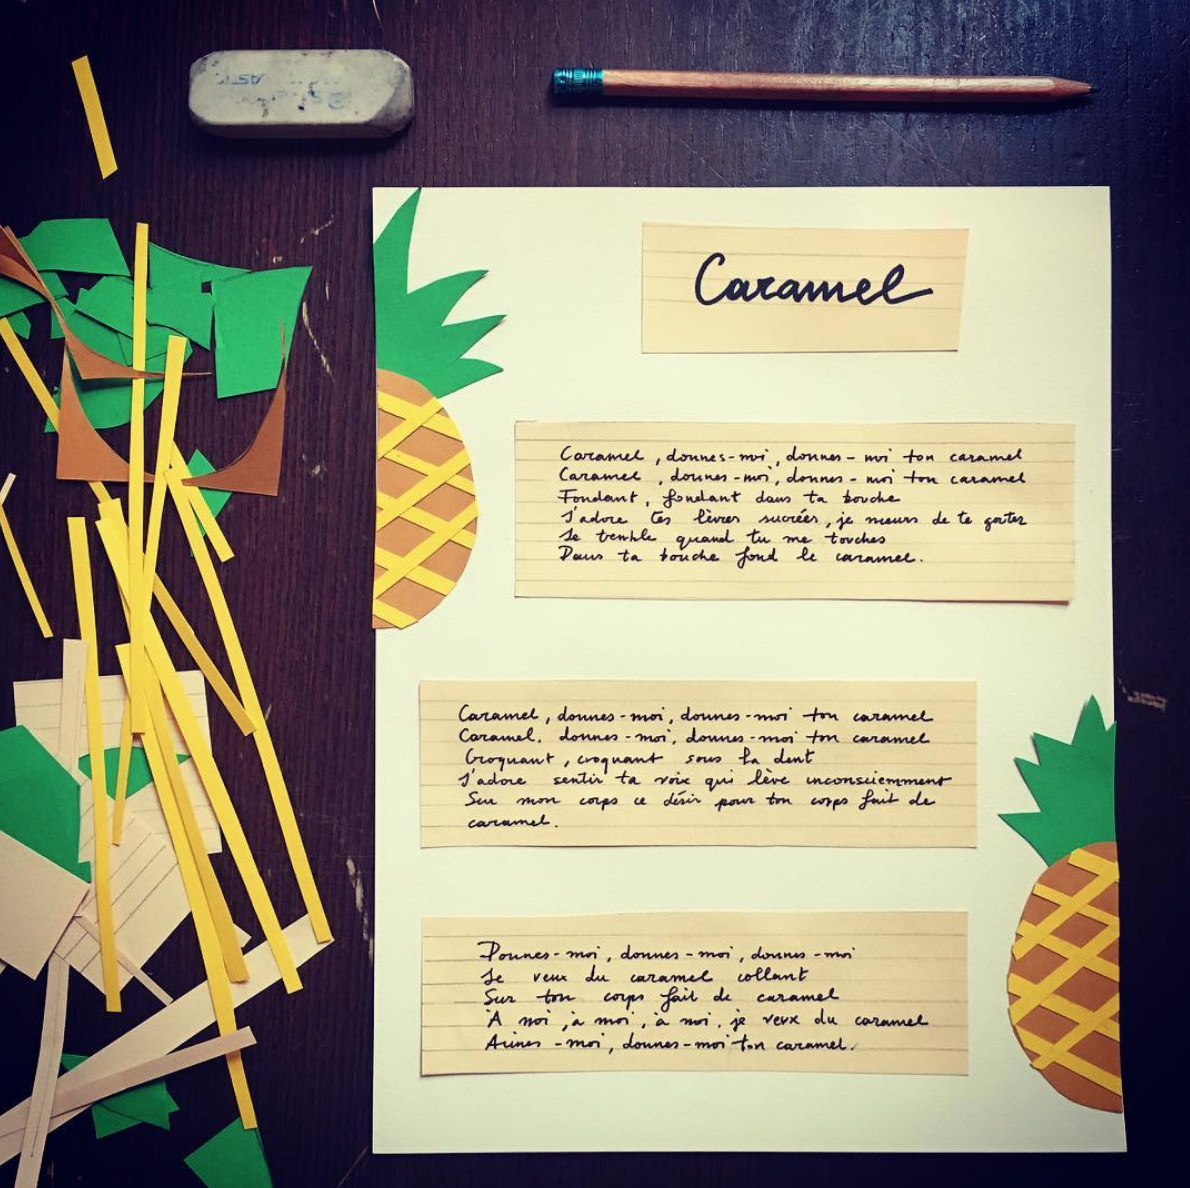 Caramel
Caramel, donnes-moi, donnes-moi ton caramel
Caramel, donnes-moi, donnes-moi ton caramel
Fondant, fondant dans ta bouche
J'adore tes lèvres sucrées, je meurs de te goûter
Je tremble quand tu me touches
Dans ta bouche fond le caramel.
Caramel, donnes-moi, donnes-moi ton caramel
Caramel, donnes-moi, donnes-moi ton caramel
Croquant, croquant sous ta dent
J'adore sentir ta voix qui lève inconsciemment
Sur mon corps ce désir pour ton corps fait de
caramel.
Donnes-moi, donnes-moi, donnes-moi
Je veux du caramel collant
Sur ton corps fait de caramel
À moi, à moi, à moi, je veux du caramel
Aimes-moi, donnes-moi ton caramel.